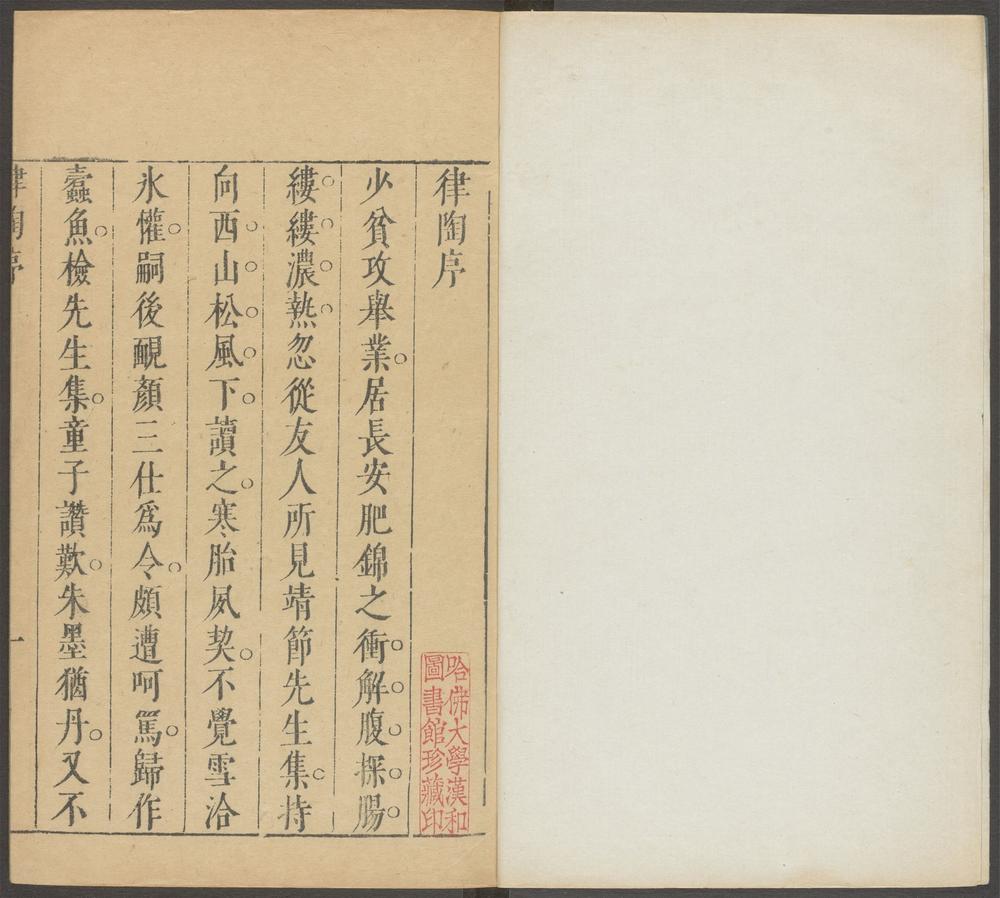 律陶序
少貧攻舉業居長安肥錦之衝解腹探腸
縷縷濃熱忽從友人所見靖節先生集持
向西山松風下讀之寒胎夙契不覺雪洽
氷懽嗣後靦顏三仕爲令頗遭呵罵歸作
蠹魚檢先生集童子讚歎朱墨猶丹又不
律陶序
一
哈佛大學漢和
圖書館珍藏印